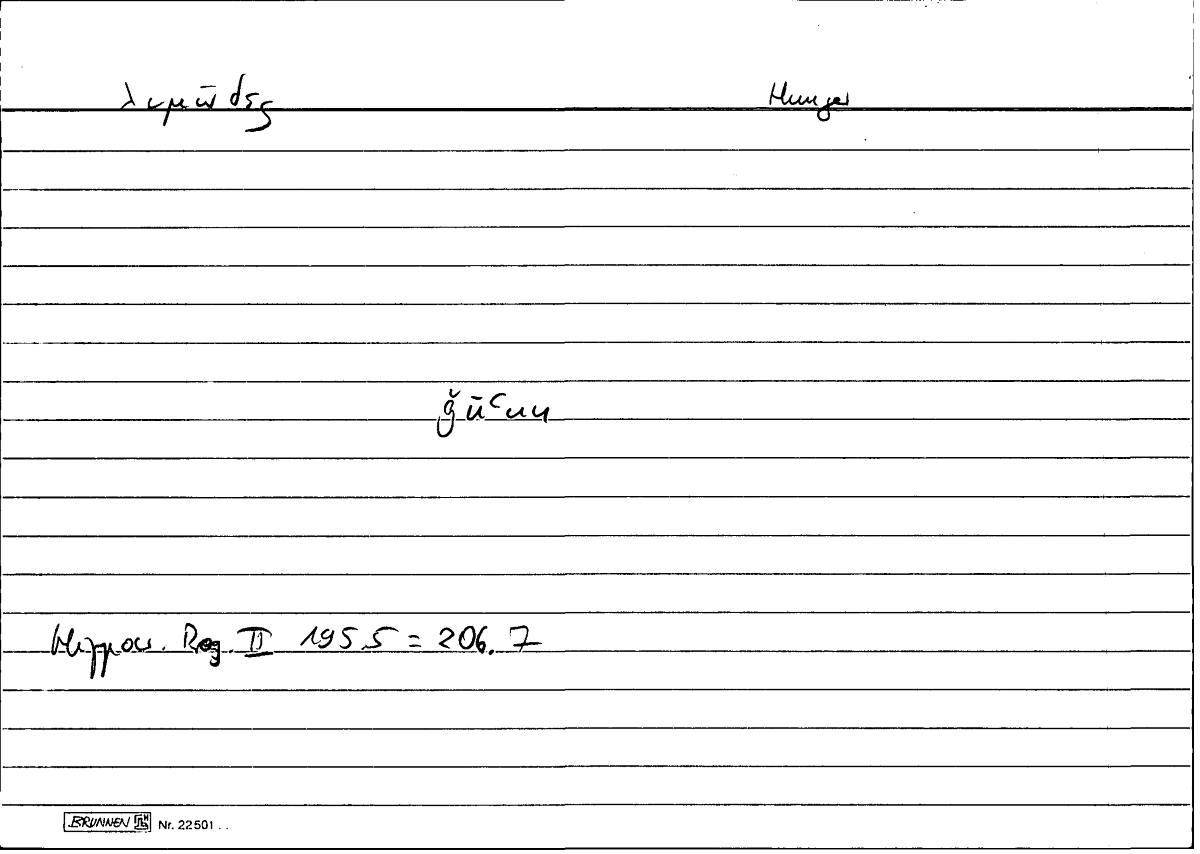 λιμῶδες Hunger
ǧūʿun
Hippocr. Reg. II 195.5 = 206.7
BRUNNEN Nr. 22501 . .